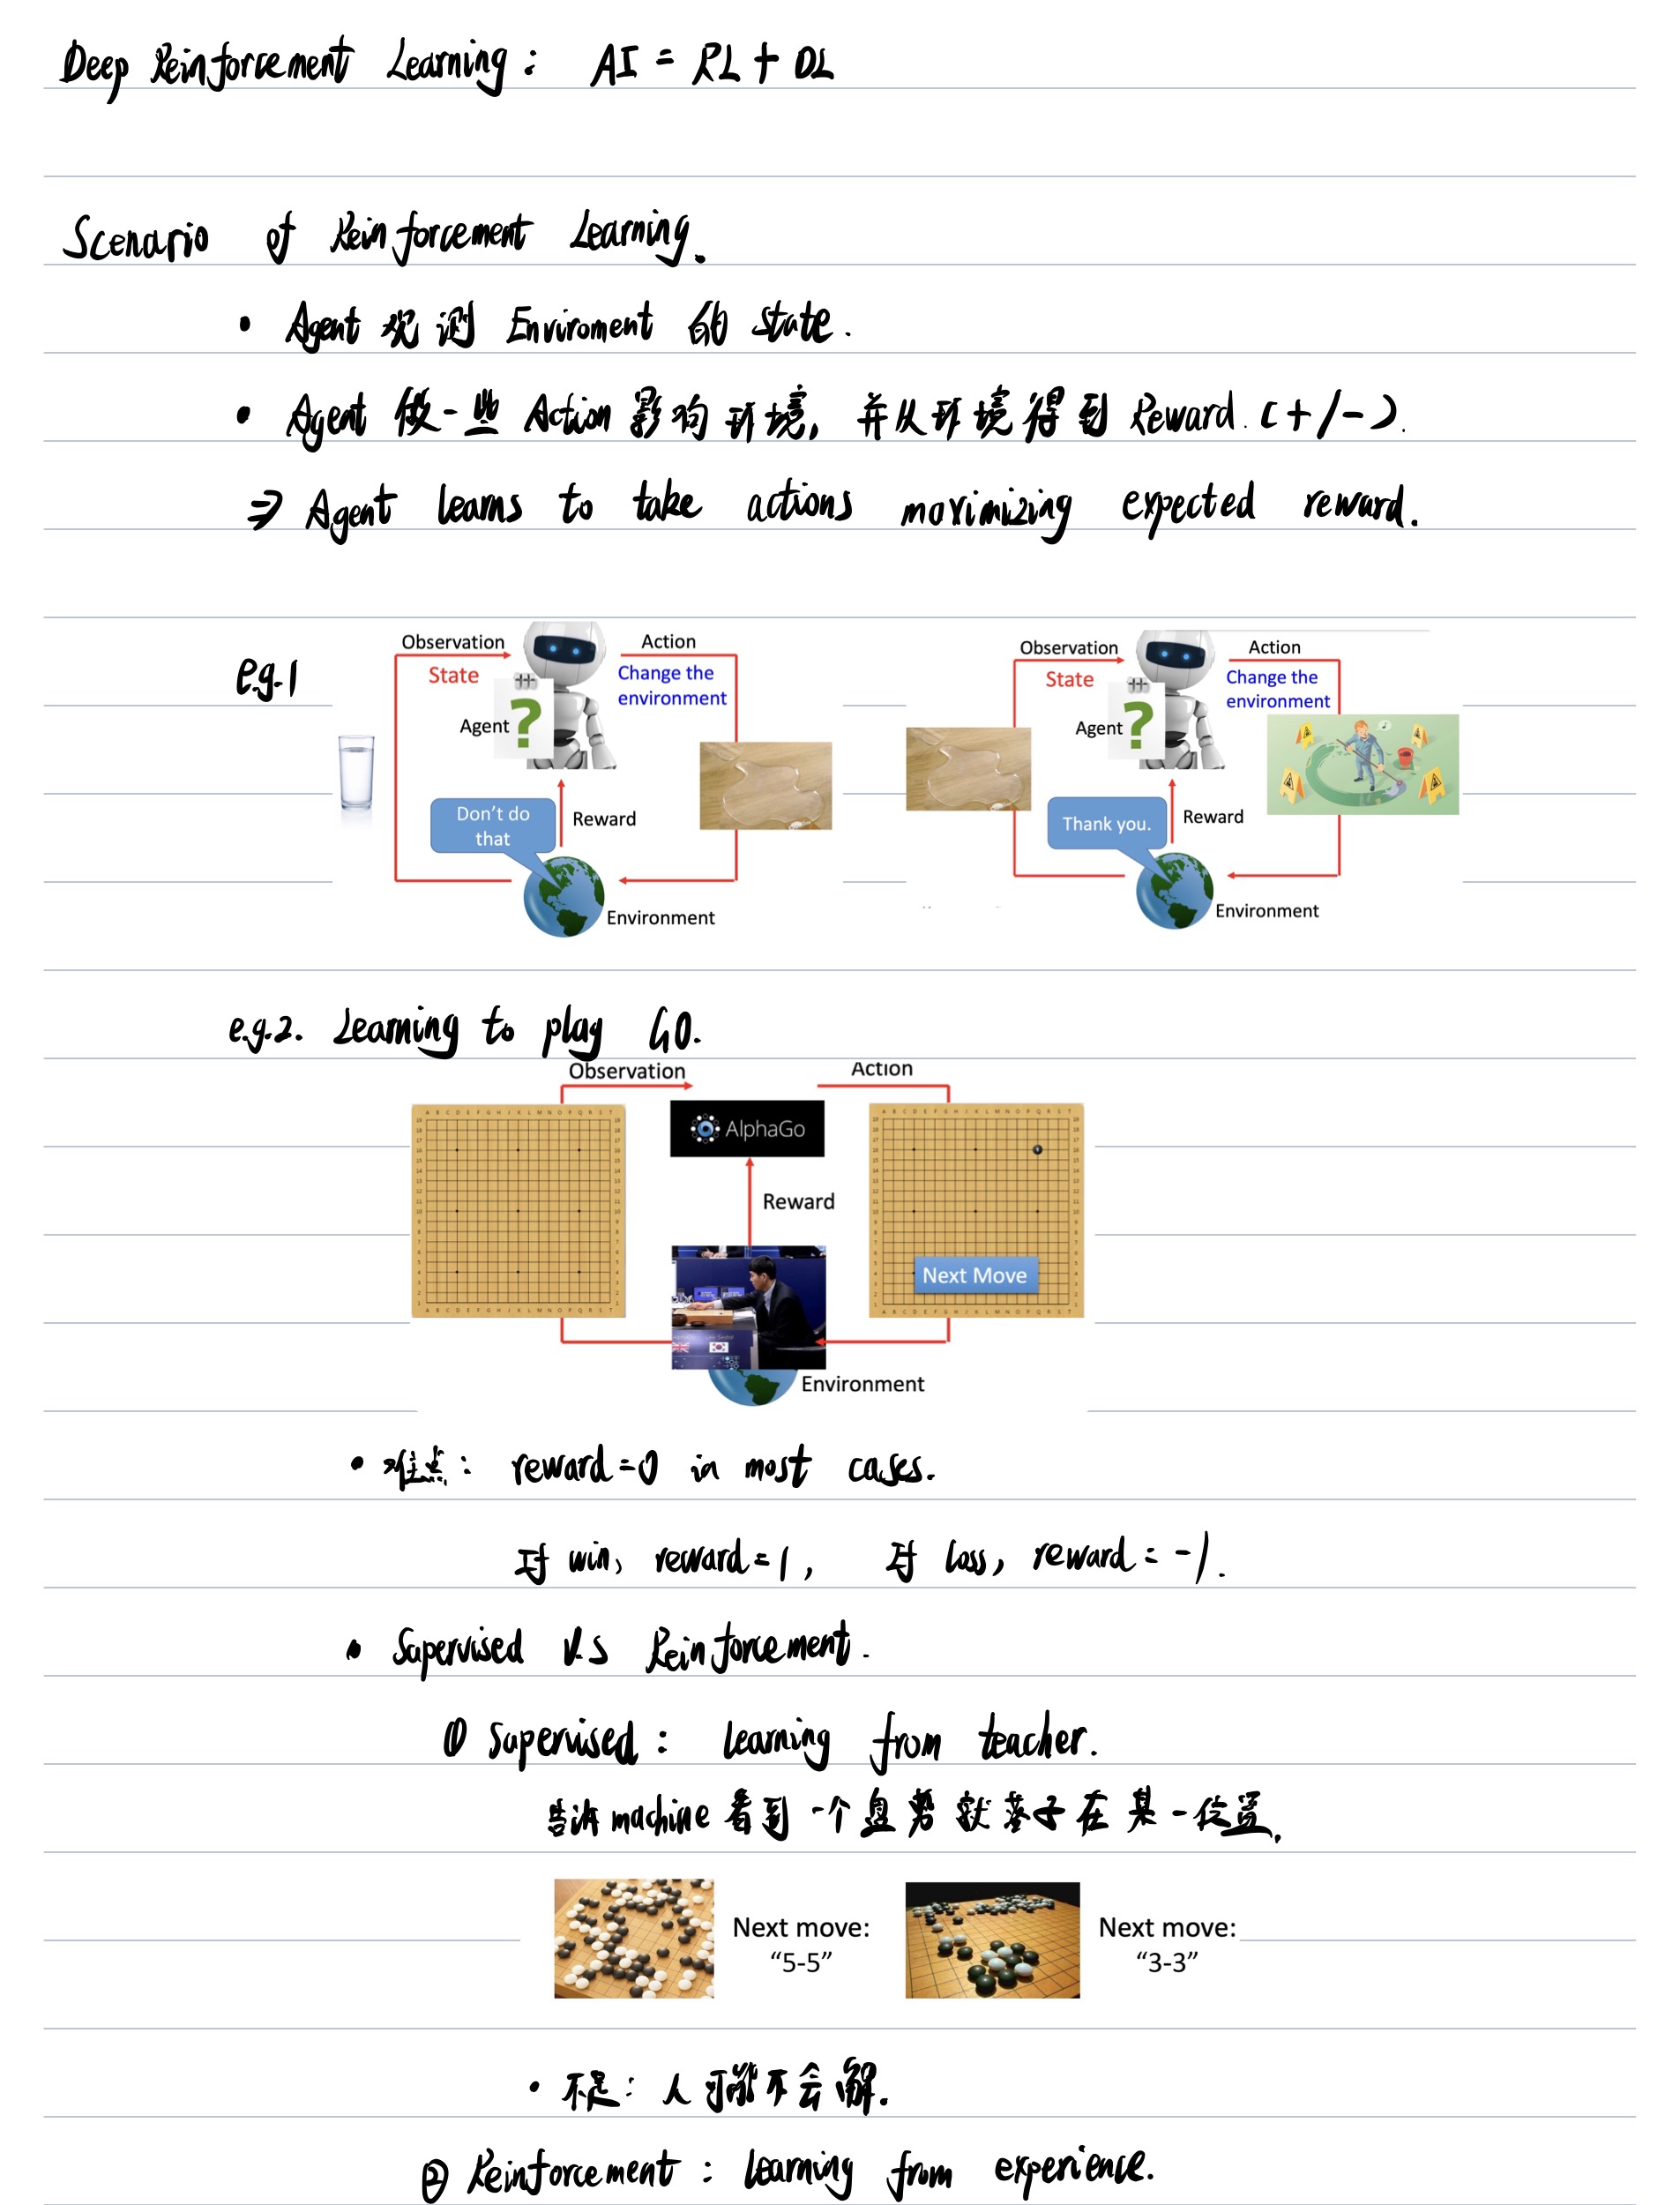 Deep Reinforcement Learning: AI = RL + DL
Scenario of Reinforcement Learning.
• Agent 观测 Enviroment 的 state.
• Agent 做一些 Action 影响环境, 并从环境得到 Reward. (+/-).
⇒ Agent learns to take actions maximizing expected reward.
e.g.1
Observation
Action
State
Change the
environment
Agent
?
Don't do
that
Reward
Environment
Observation
Action
State
Change the
environment
Agent
?
Thank you.
Reward
Environment
e.g.2. Learning to play GO.
Observation
Action
AlphaGo
Reward
Next Move
Environment
• 难点: reward=0 in most cases.
If win, reward=1, If loss, reward=-1.
• Supervised V.S Reinforcement.
① Supervised: Learning from teacher.
告诉 machine 看到一个盘势就落子在某一位置.
Next move:
“5-5”
Next move:
“3-3”
• 不足: 人可能不会解.
② Reinforcement: Learning from experience.